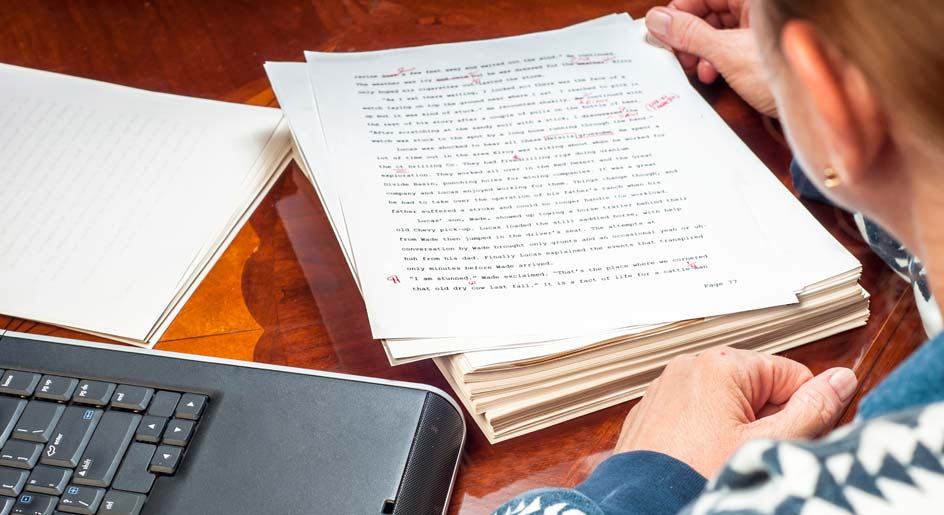 ravine a few feet away and waited out the wind." He continued.
The weather was icy and he was dressed for the weather. Elroy
only hoped his cigarettes outlasted the storm.
"As I sat there waiting, I looked and there was the face of a
watch laying on top the ground near where I sat. I reached to pick it
up but it was kind of stuck." He continued with
the rest of his story after a couple of pulls on the bottle of beer.
"After scratching at the sandy soil with a stick, I discovered the
watch was stuck to the spot by a long bone running through its band."
Lucas was shocked to hear all these details. He spent a
lot of time out in the area Elroy was talking about when he worked for
the ot Drilling Co. They had drilling rigs doing uranium
exploration. They worked all over in the Red Desert and the Great
Divide Basin, punching holes for mining companies. It was a great
company and Lucas enjoyed working for them. Things change though, and
he had to take over the operation of his father's ranch when his
father suffered a stroke and could no longer handle the workload.
Lucas' son, Wade, showed up towing a horse trailer behind their
old Chevy pick-up. Lucas loaded the still saddled horse, with help
from Wade then jumped in the driver's seat. The attempts at
conversation by Wade brought only grunts and an occasional yeah or uh-
huh from his dad. Finally Lucas explained the events that transpired
only minutes before Wade arrived.
"I am stunned," Wade exclaimed. "That's the place where we cornered
that old dry cow last fall." It is a fact of life for a cattle man
Page 77